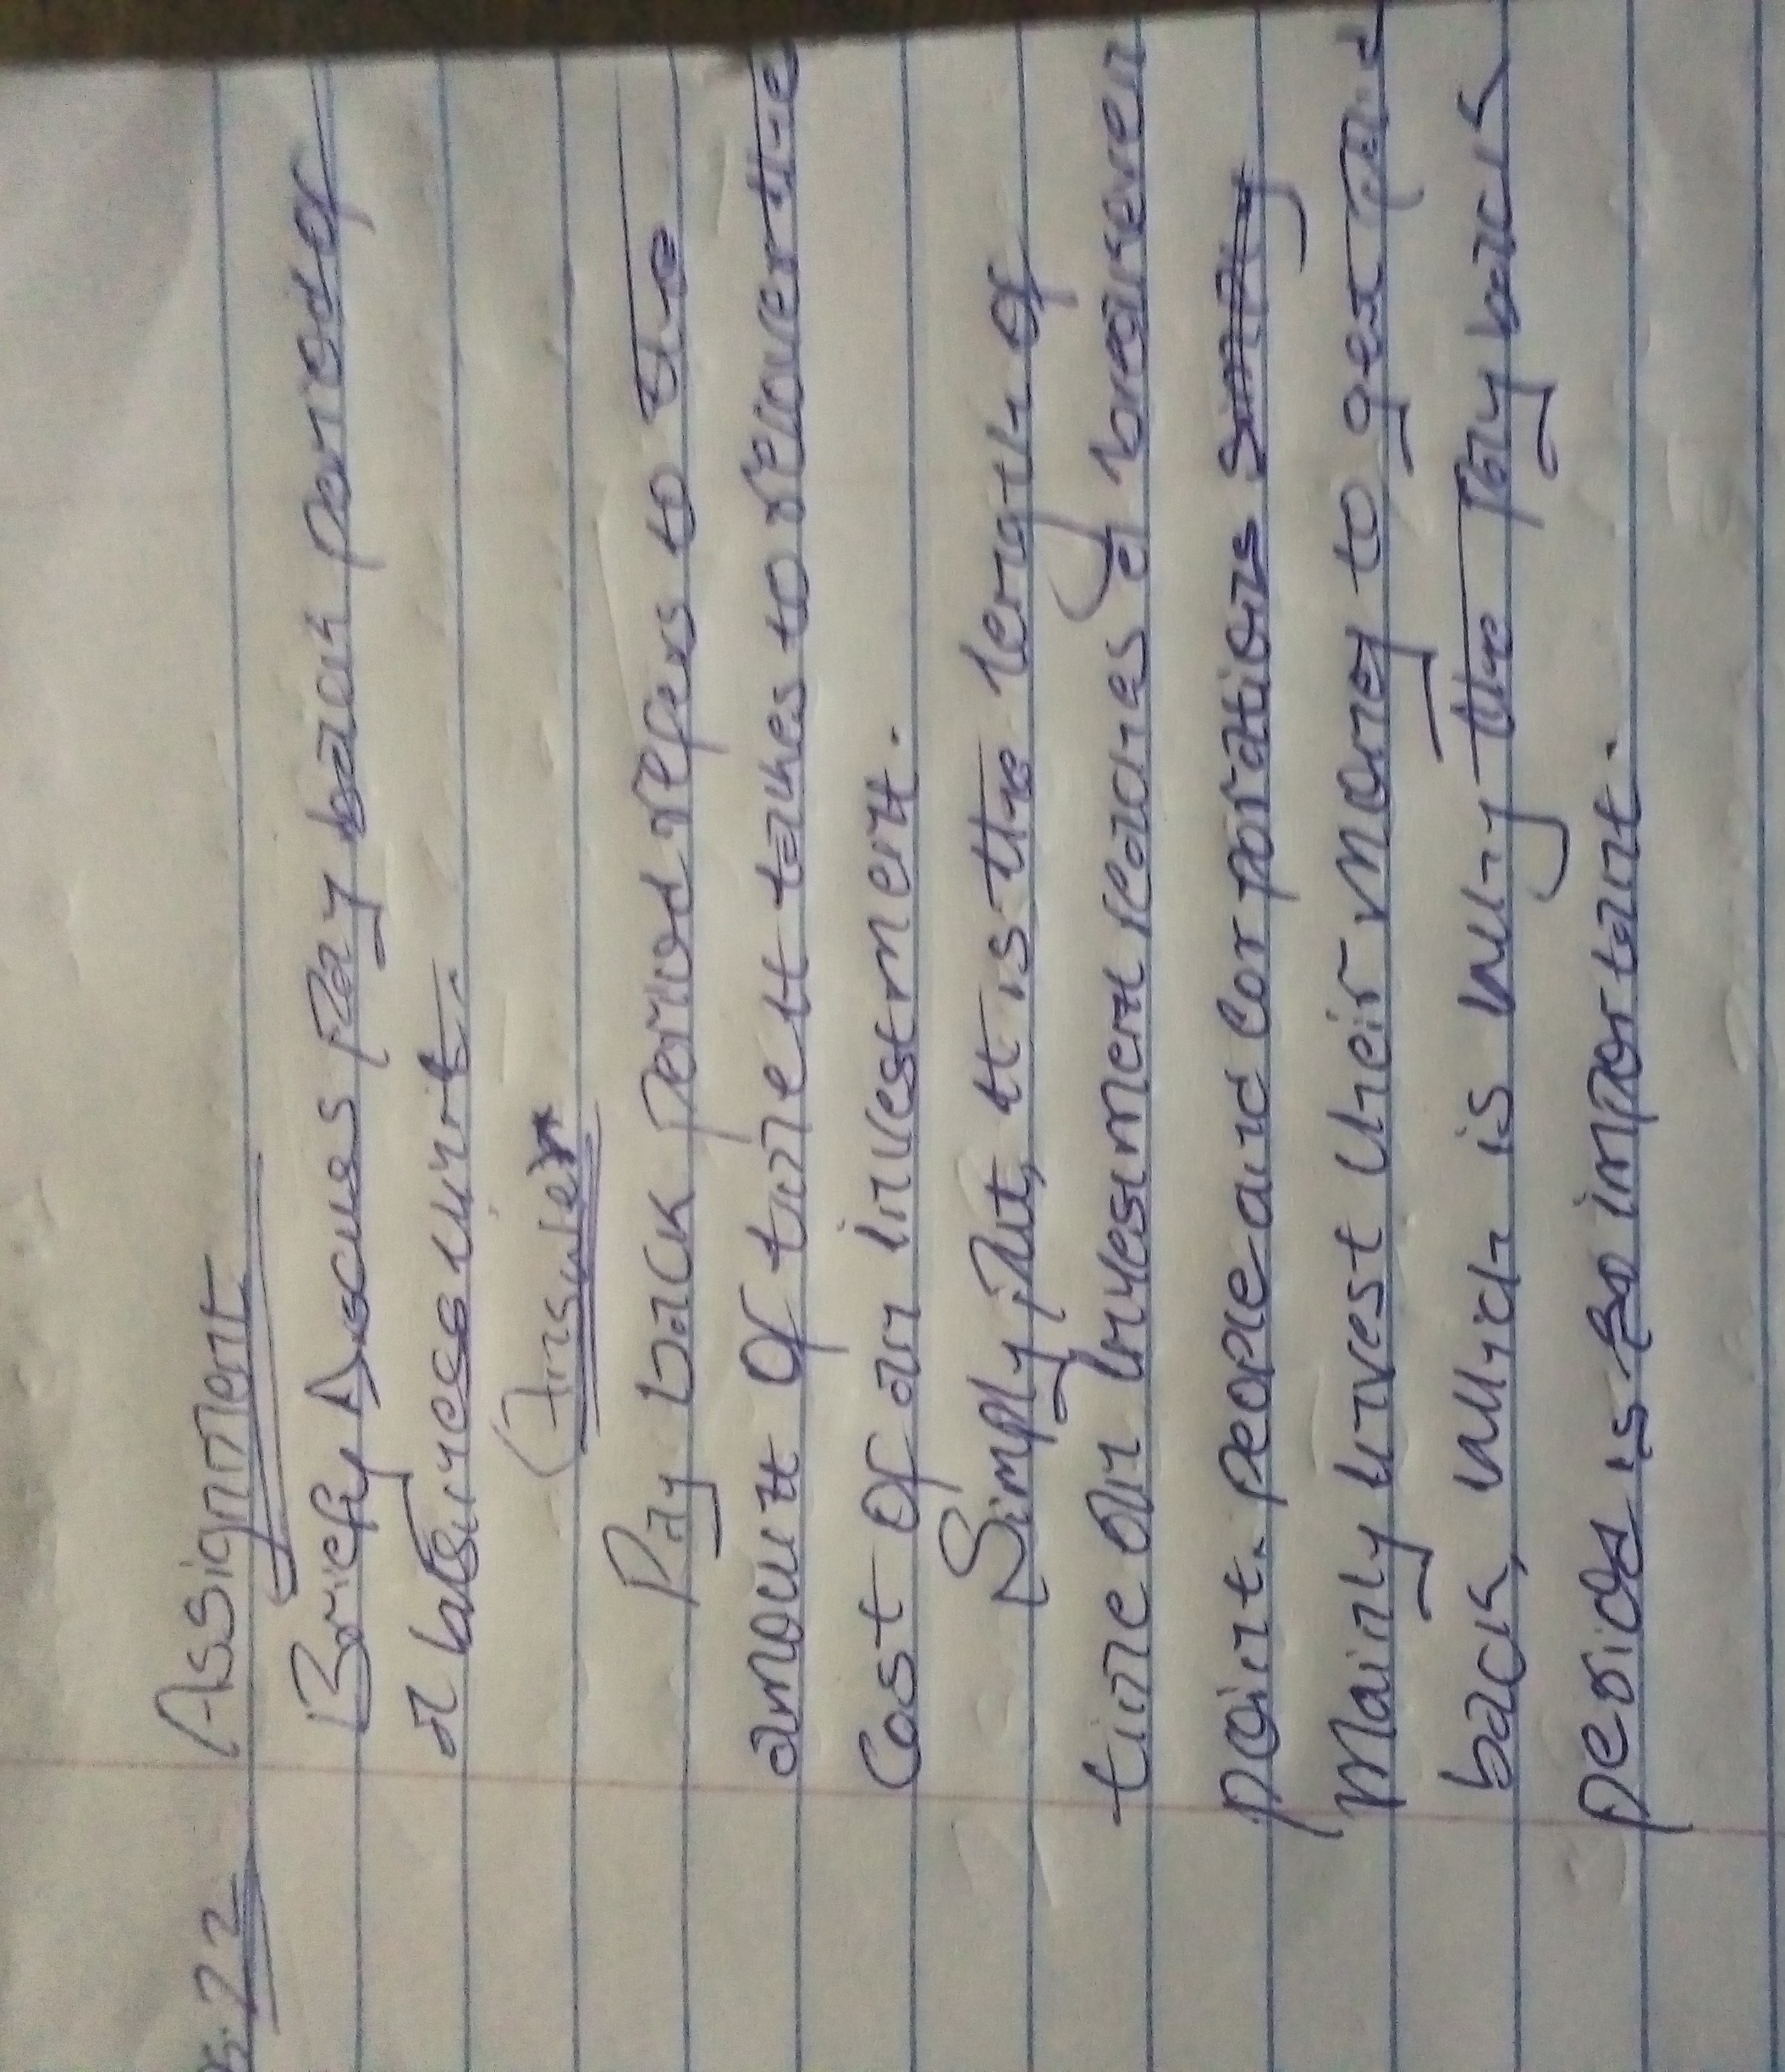 5.22
Assignment
Briefly Discuss Pay back period of
a business unit.
Answer
Pay back Period refers to the
amount of time it takes to recover the
Cost of an investment.
Simply Put, it is the length of
time an invesment reaches a breakeven
point. people and corporations
Mainly invest their money to get paid
back, which is why the Pay back
period is so important.